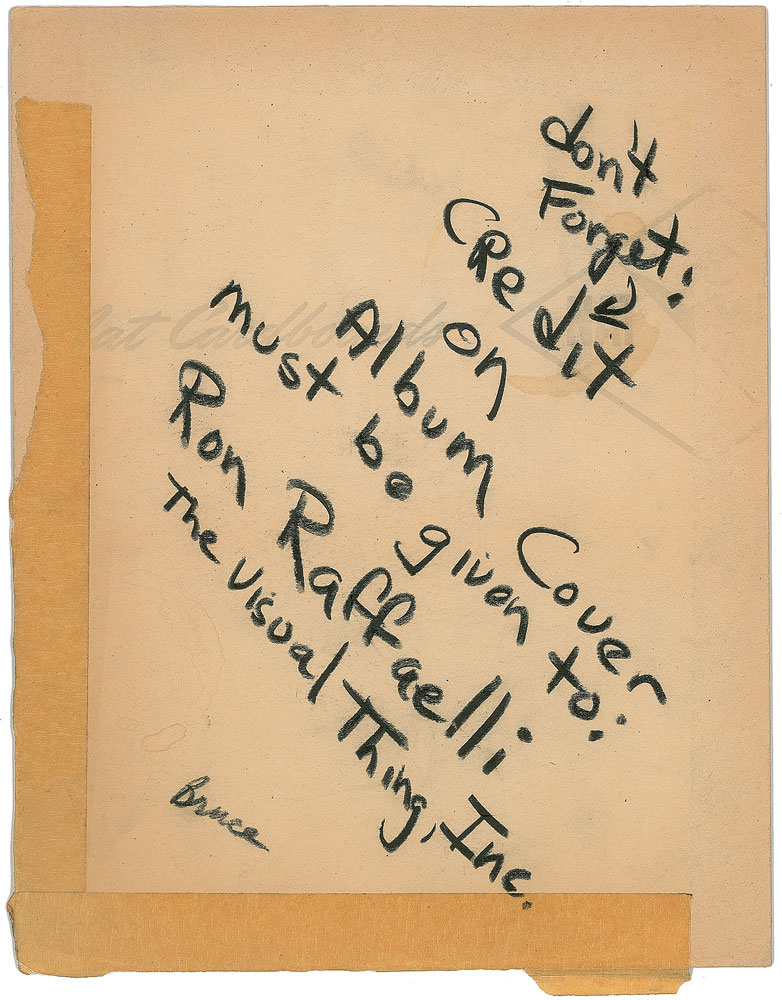 don't
Forget:
CRedit
on
Album Cover
must be given to:
Ron Raffaelli
The Visual Thing, Inc.
Bruce
Cardboards